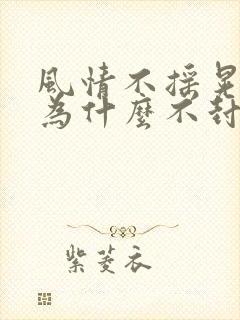 風情不摇晃
為什麼不封
紫菱衣